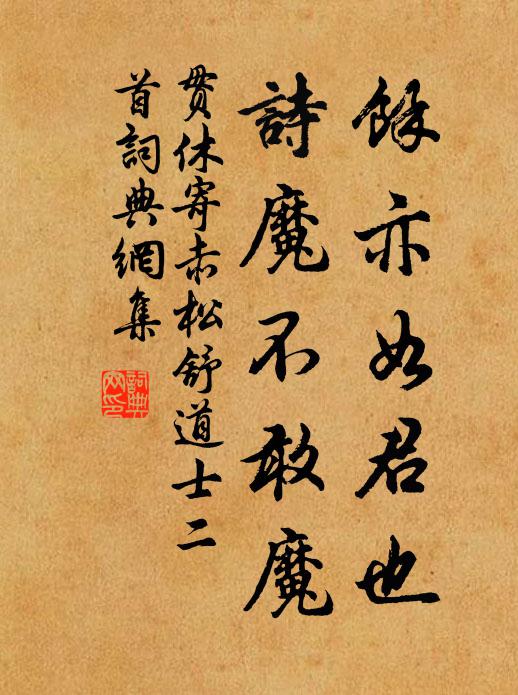 餘亦如君也
詩魔不敢魔
貫休寄赤松舒道士二
首詞典網集
詞典
網印